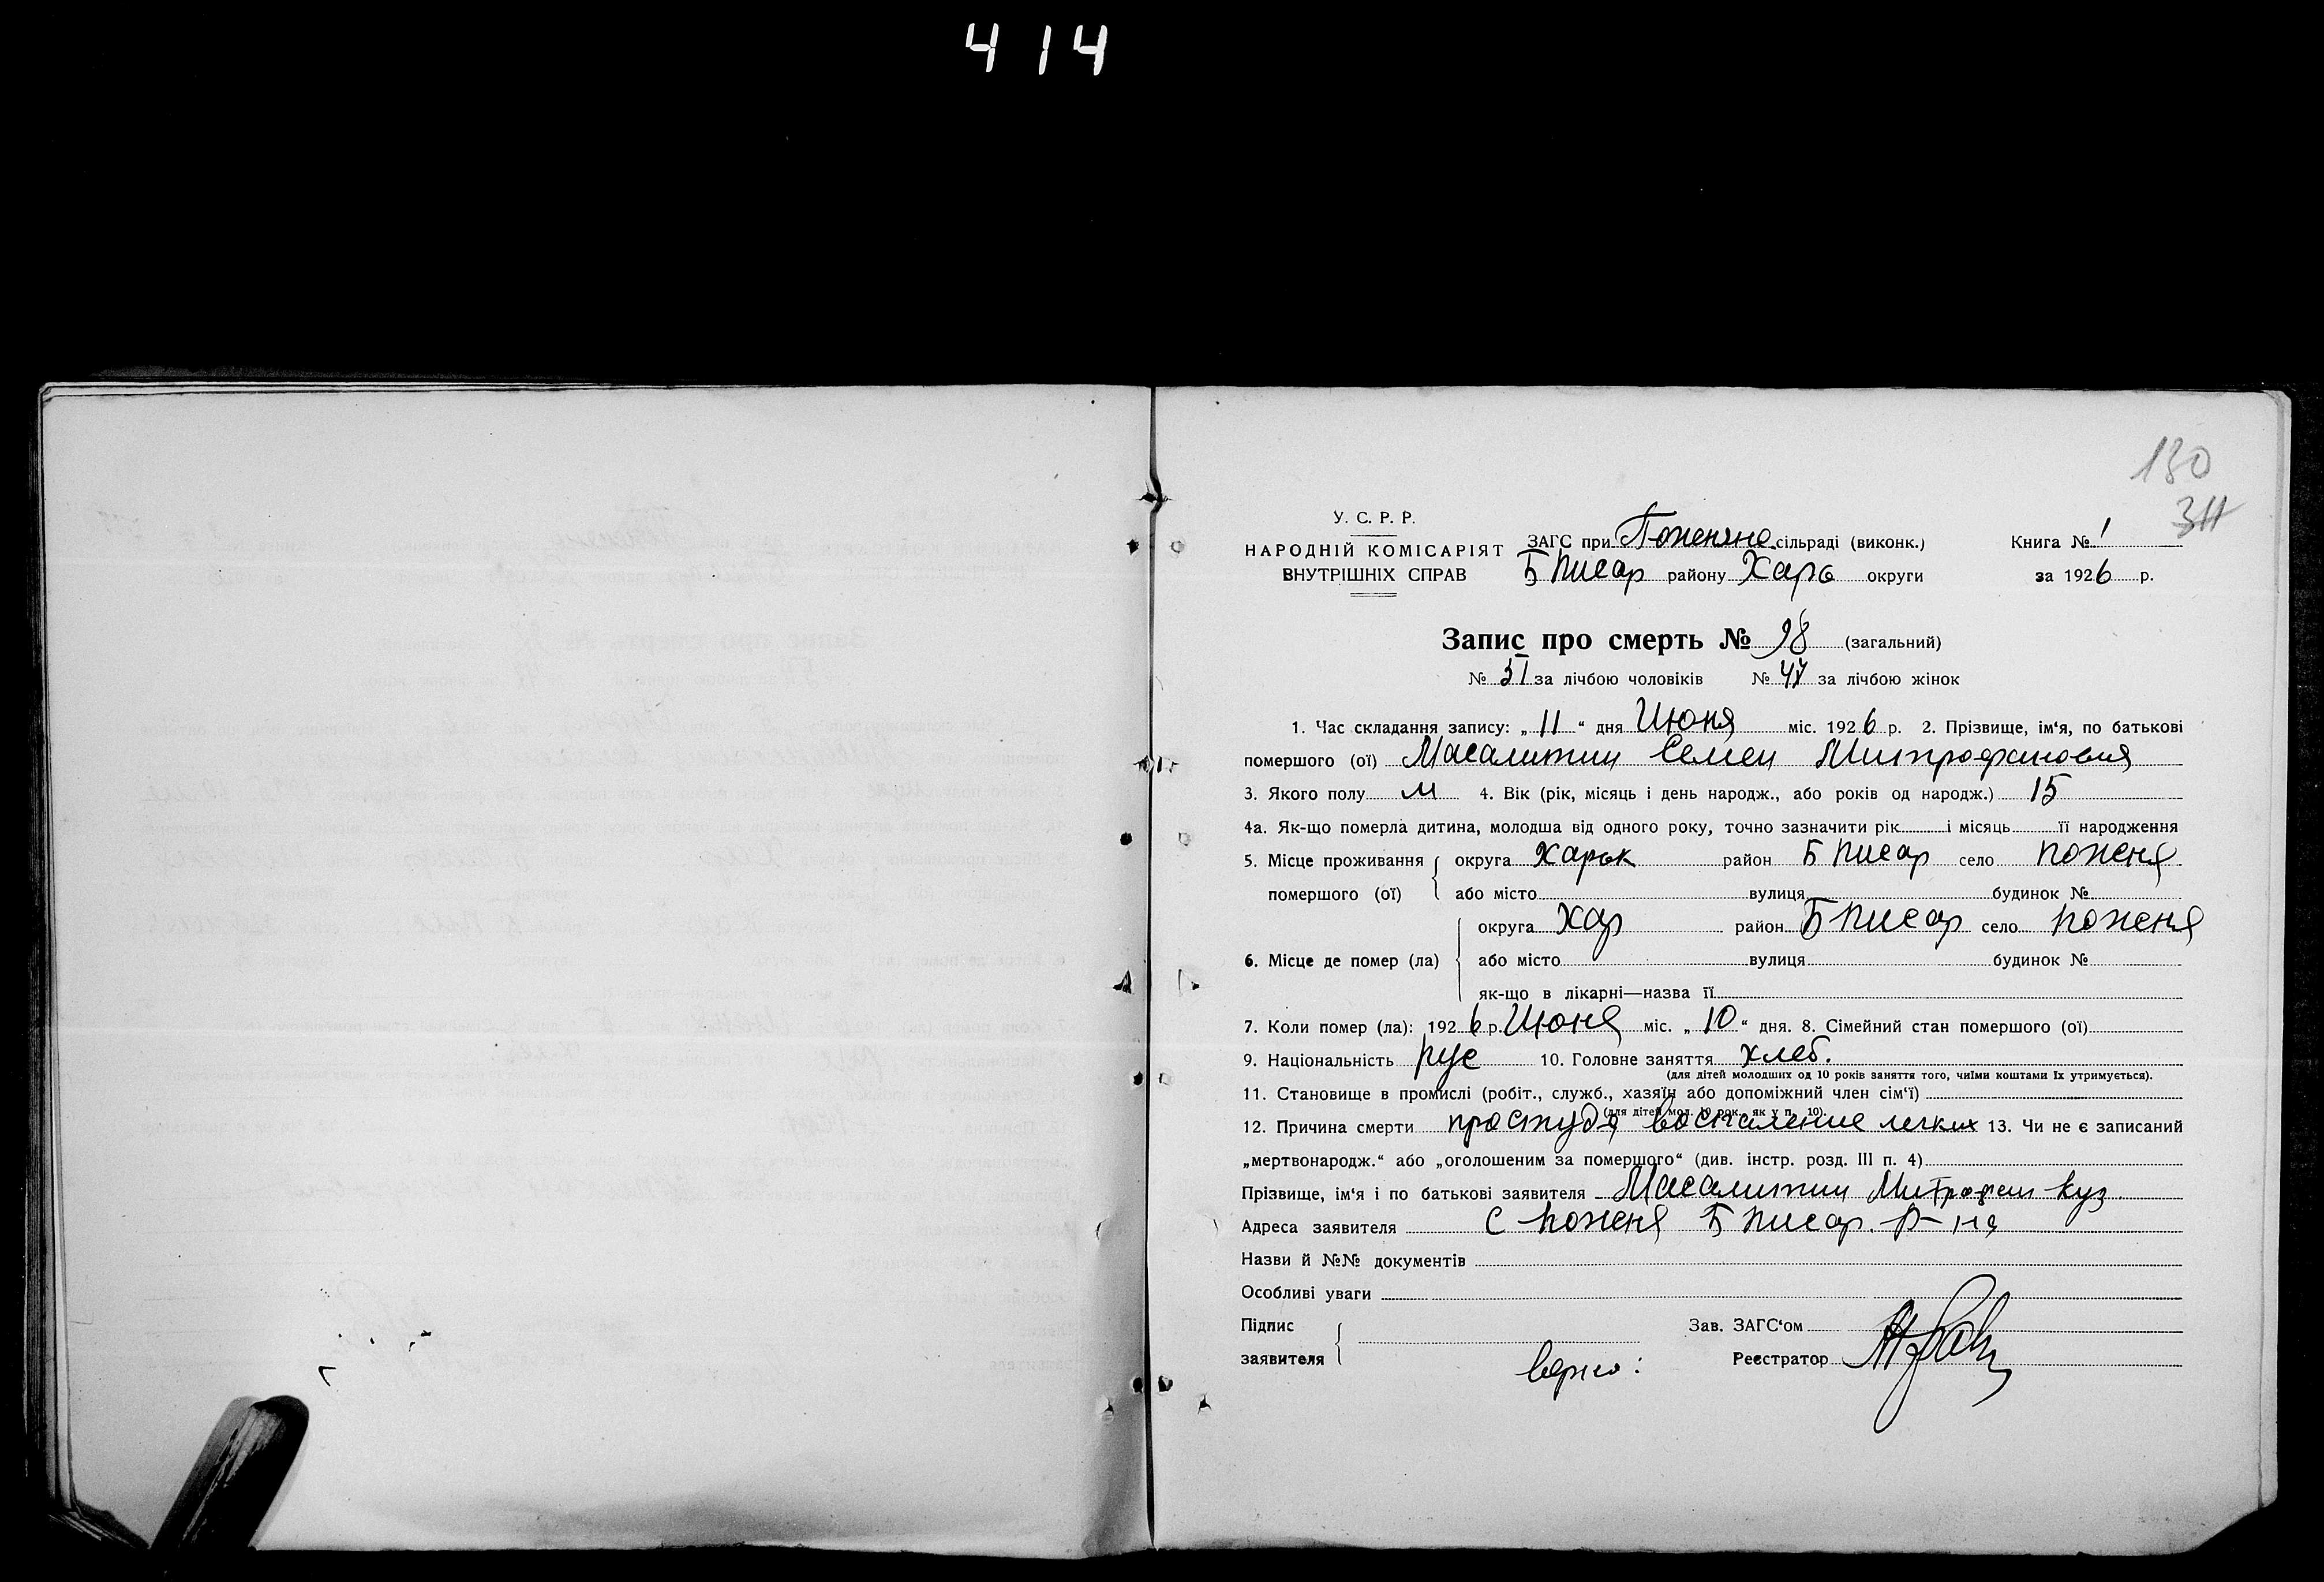 4 14
130
311
У. С. Р. Р.
НАРОДНІЙ КОМІСАРІЯТ
ВНУТРІШНІХ СПРАВ
ЗАГС при Поженяне сільраді (виконк.)
Б Писар району Харь округи
Книга № 1
за 1926 р.
Запис про смерть № 98 (загальний)
№ 51 за лічбою чоловіків № 47 за лічбою жінок
1. Час складання запису: „ 11 “ дня Июня міс. 1926 р. 2. Прізвище, ім‘я, по батькові
помершого (ої) Масалитин Семен Митрофанович
3. Якого полу м 4. Вік (рік, місяць і день народж., або років од народж.) 15
4а. Як-що померла дитина, молодша від одного року, точно зазначити рік і місяць її народження
5. Місце проживання помершого (ої) округа Харьк район Б Писар село Поженя
або місто вулиця будинок №
6. Місце де помер (ла) округа Хар район Б Писар село Поженя
або місто вулиця будинок №
як-що в лікарні—назва її
7. Коли помер (ла): 1926 р. Июня міс. „ 10 “ дня. 8. Сімейний стан помершого (ої)
9. Національність рус 10. Головне заняття хлеб.
(для дітей молодших од 10 років заняття того, чиїми коштами їх утримується).
11. Становище в промислі (робіт., служб., хазяїн або допоміжний член сім‘ї)
(для дітей мол. 10 рок., як у п. 10).
12. Причина смерти простуда воспаление легких 13. Чи не є записаний
„мертвонародж.“ або „оголошеним за помершого“ (див. інстр. розд. III п. 4)
Прізвище, ім‘я і по батькові заявителя Масалитин Митрофан Куз
Адреса заявителя с Поженя Б Писар. р-на
Назви й №№ документів
Особливі уваги
Підпис
заявителя
Зав. ЗАГС‘ом
Реєстратор
верно: